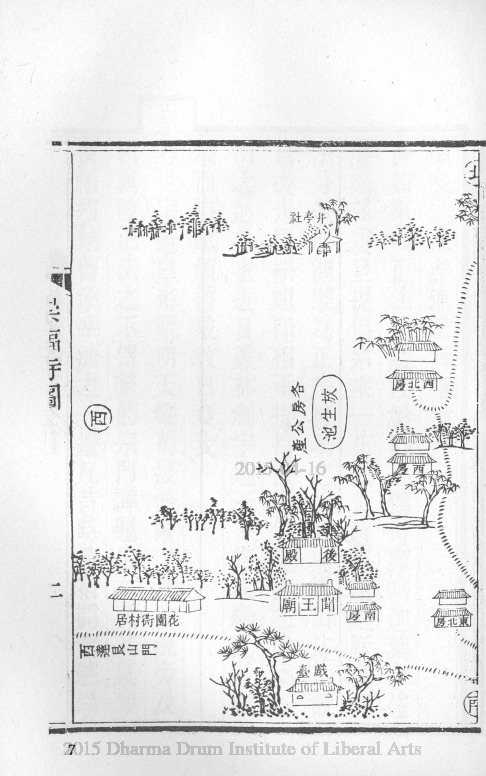 北
井亭社
西北房
放生池
各房公產
西
福寺圖
西房
後殿
閻王廟
南房
東北房
花園街村居
西達艮山門
戲臺
二
7
2015 Dharma Drum Institute of Liberal Arts